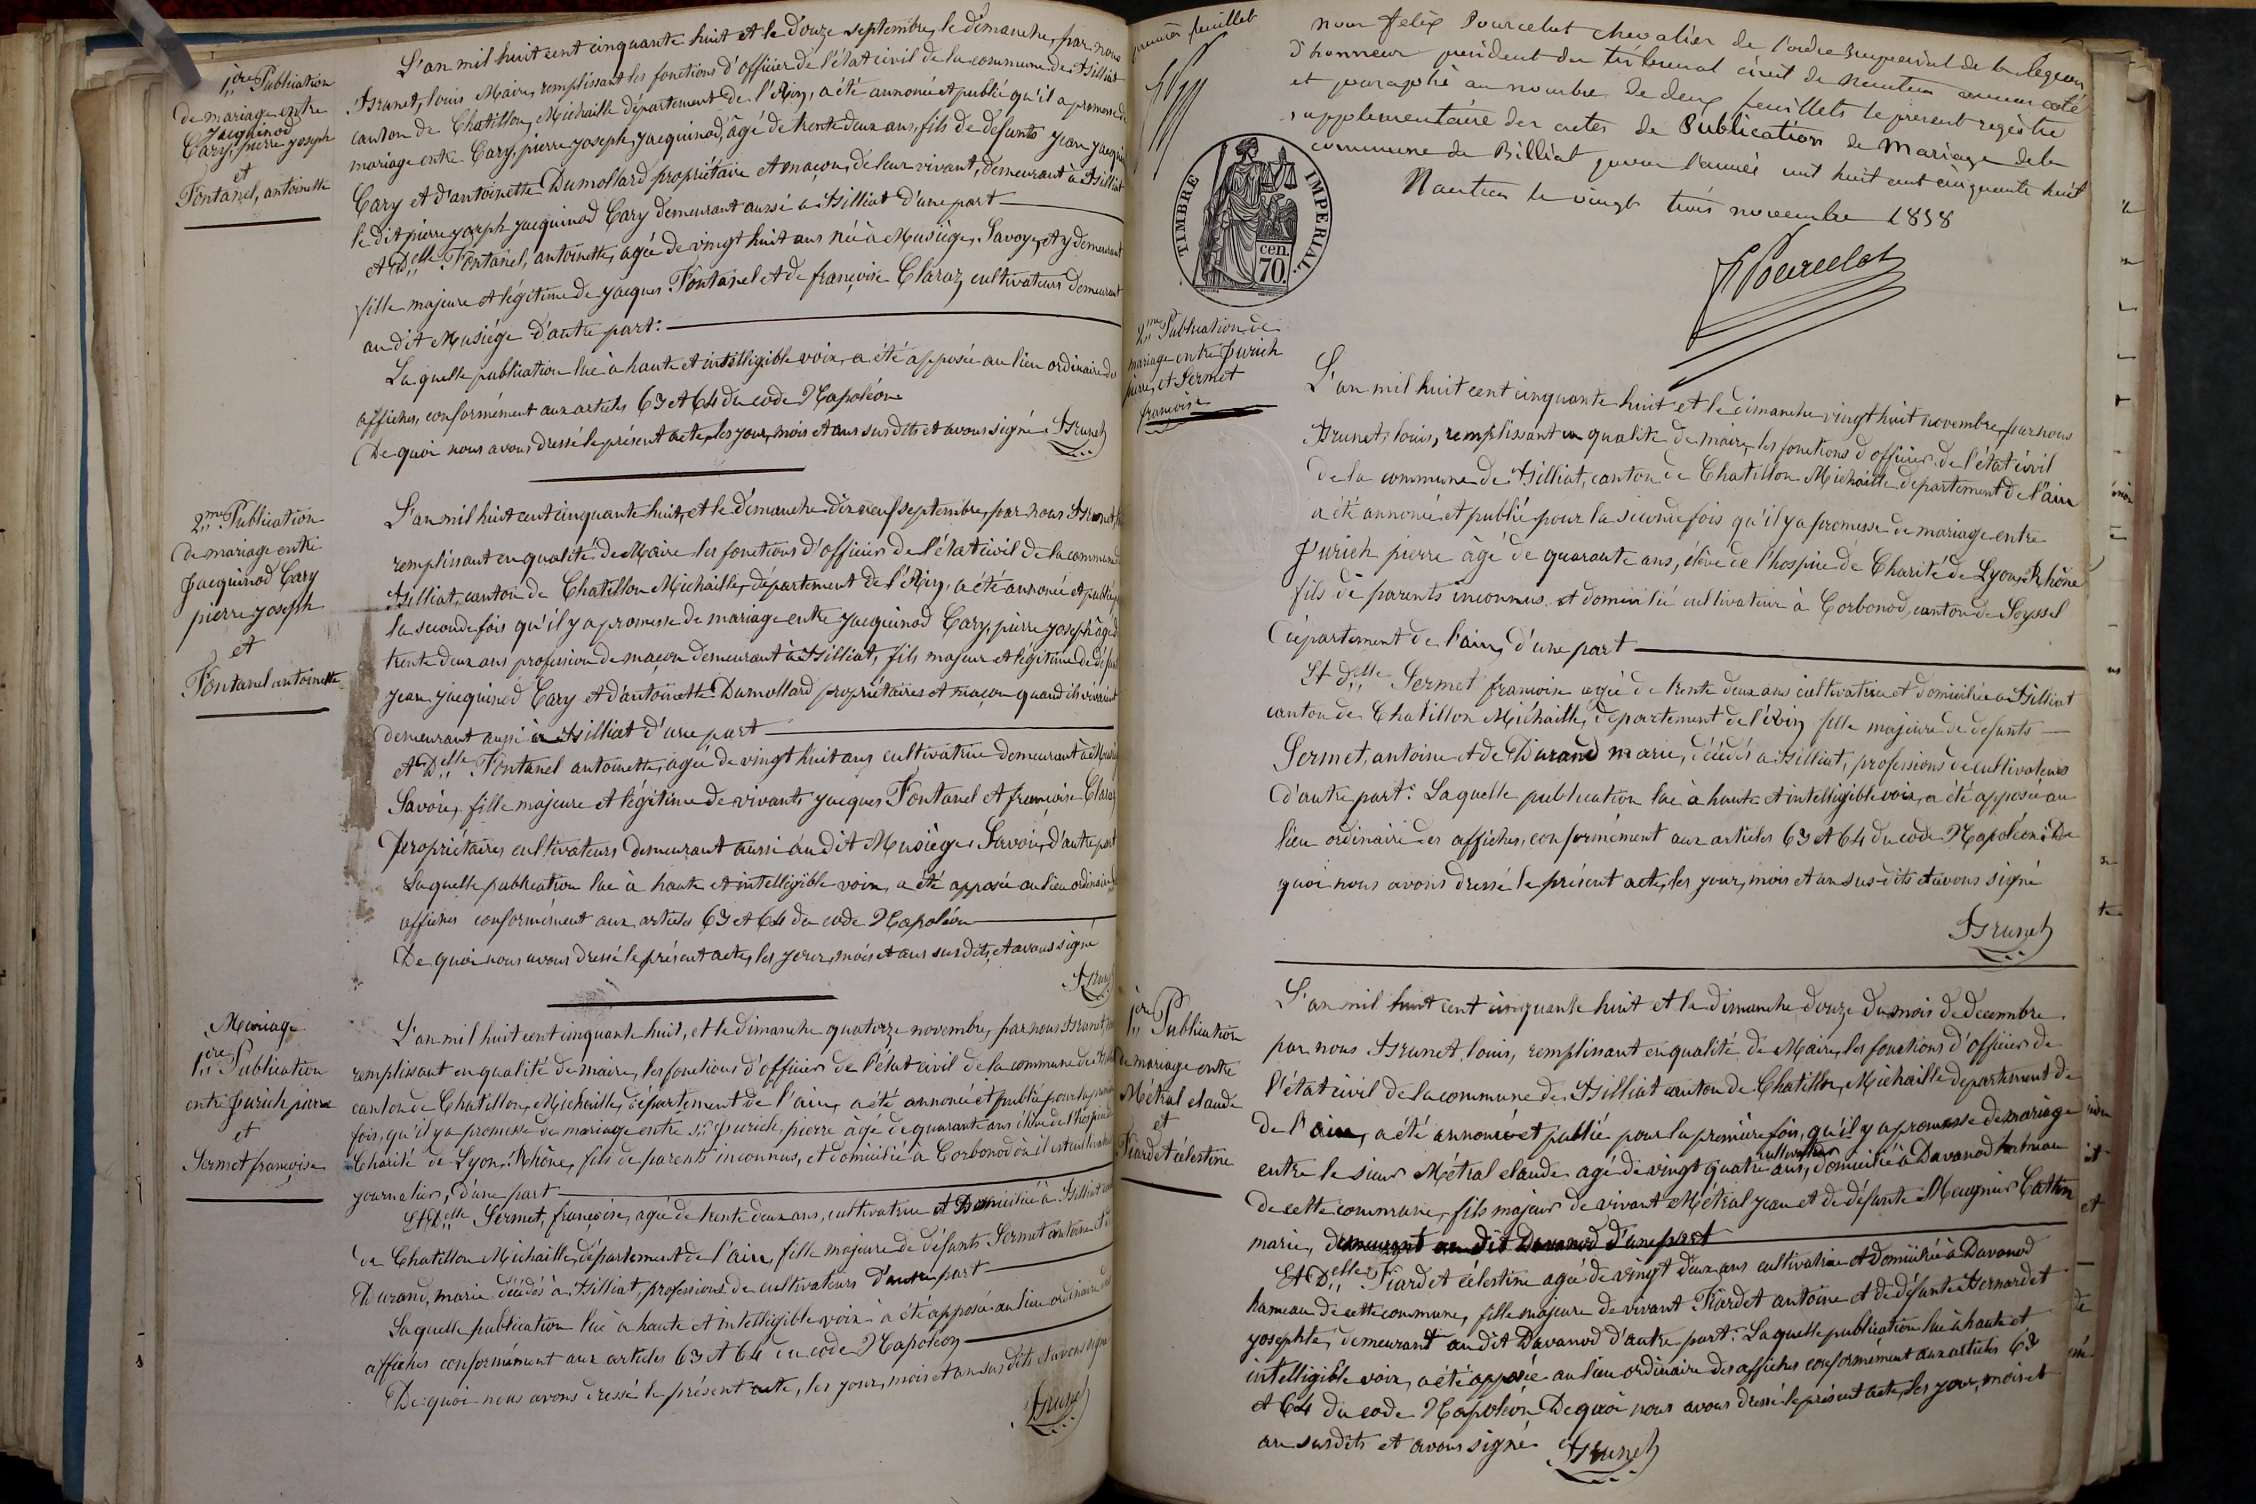 1ère Publication
de mariage entre
Jacquinod
Cary, pierre joseph
et
Fontanel, antoinette
L'an mil huit cent cinquante huit et le Douze septembre, le dimanche, par nous
Brunet, louis Maire, remplissant les fonctions d'officier de l'état civil de la commune de Billiat
canton de Chatillon, Michaille département de l'Ain, a été annoncé et publié qu'il a promesse de
mariage entre Cary, pierre joseph, jacquinod, âgé de trente deux ans, fils de défunts jean jacquinod
Cary et d'antoinette Dumollard propriétaire et maçon, de leur vivant, demeurant à Billiat
le dit pierre joseph jacquinod Cary demeurant aussi à Billiat d'une part
et Delle Fontanel, antoinette, agée de vingt huit ans née à Musiège, Savoye, et y demeurant
fille majeure et légitime de jacques Fontanel et de françoise Claraz cultivateurs demeurant
au dit Musiège d'autre part:
La quelle publication lue à haute et intelligible voix, a été apposée au lieu ordinaire des
affiches, conformément aux articles 63 et 64 du code Napoléon
De quoi nous avons dressé le présent acte, les jour, mois et ans susdits et avons signé Brunet
2me Publication
de mariage entre
Jacquinod Cary
pierre joseph
et
Fontanel antoinette
L'an mil huit cent cinquante huit, et le dimanche dix neuf septembre, par nous Brunet,
remplissant en qualité de Maire les fonctions d'officier de l'état civil de la commune
Billiat, canton de Chatillon Michaille, département de l'Ain, a été annoncé et publié
la seconde fois qu'il y a promesse de mariage entre jacquinod Cary, pierre joseph âgé de
trente deux ans profession de maçon demeurant à Billiat, fils majeur et légitime de défunts
jean jacquinod Cary et d'antoinette Dumollard propriétaires et maçon quand ils vivaient
demeurant aussi à Billiat d'une part
et Delle Fontanel antoinette, agée de vingt huit ans cultivatrice demeurant à Musiège
Savoie, fille majeure et légitime de vivants jacques Fontanel et françoise Claraz
propriétaires cultivateurs demeurant aussi au dit Musiège, Savoie, d'autre part
Laquelle publication lue à haute et intelligible voix, a été apposée au lieu ordinaire
affiches conformément aux articles 63 et 64 du code Napoléon
De quoi nous avons dressé le présent acte, les jour, mois et ans susdits, et avons signé
Brunet
Mariage
1ère Publication
entre Jurich pierre
et
Sermet françoise
L'an mil huit cent cinquante huit, et le dimanche quatorze novembre, par nous Brunet,
remplissant en qualité de maire, les fonctions d'officier de l'état civil de la commune de Billiat
canton de Chatillon, Michaille, département de l'ain, a été annoncé et publié pour la première
fois, qu'il y a promesse de mariage entre sr Jurich, pierre âgé de quarante ans élève de l'hospice de
Charité de Lyon, Rhône, fils de parents inconnus, et domicilié à Corbonod où il est cultivateur
journalier, d'une part
Et Delle Sermet, françoise, agée de trente deux ans, cultivatrice et Domiciliée à Billiat
de Chatillon Michaille, département de l'ain, fille majeure de défunts Sermet antoine et de
Durand, marie décédés à Billiat, professions de cultivateurs d'autre part
Laquelle publication lue à haute et intelligible voix a été apposée au lieu ordinaire des
affiches conformément aux articles 63 et 64 du code Napoléon
De quoi nous avons dressé le présent acte, les jour, mois et an susdits et avons signé
Brunet
premier feuillet
nous Felix Pourcelot chevalier de l'ordre Imperial de la Légion
d'honneur president du tribunal civil de Nantua avons coté
et paraphé au nombre de deux feuillets le present registre
supplementaire des actes de Publication de Mariage de la
commune de Billiat pour l'année mil huit cent cinquante huit
Nantua le vingt trois novembre 1858
F Pourcelot
TIMBRE IMPERIAL.
70 cen.
2me Publication de
mariage entre Jurich
pierre, et Sermet
françoise
L'an mil huit cent cinquante huit et le dimanche vingt huit novembre, par nous
Brunet, louis, remplissant en qualité de maire, les fonctions d'officier de l'état civil
de la commune de Billiat, canton de Chatillon Michaille département de l'ain
a été annoncé et publié pour la seconde fois qu'il y a promesse de mariage entre
Jurich pierre âgé de quarante ans, élève de l'hospice de Charité de Lyon, Rhône
fils de parents inconnus et domicilié cultivateur à Corbonod, canton de Seyssel
département de l'ain, d'une part
Et Delle Sermet françoise agée de trente deux ans cultivatrice et domiciliée à Billiat
canton de Chatillon Michaille, département de l'Ain fille majeure de défunts
Sermet, antoine et de Durand marie, décédés à Billiat, professions de cultivateurs
d'autre part: Laquelle publication lue à haute et intelligible voix, a été apposée au
lieu ordinaire des affiches, conformément aux articles 63 et 64 du code Napoléon: De
quoi nous avons dressé le présent acte, les jour, mois et an sus-dits et avons signé
Brunet
1ère Publication
de mariage entre
Métral claude
et
Tiardet célestine
L'an mil huit cent cinquante huit et le dimanche douze du mois de decembre
par nous Brunet, louis, remplissant en qualité de Maire, les fonctions d'officier de
l'état civil de la commune de Billiat canton de Chatillon, Michaille département de
de l'ain, a été annoncé et publié pour la première fois, qu'il y a promesse de mariage
entre le sieur Métral claude agé de vingt quatre ans, cultivateur domicilié à Davanod hameau
de cette commune, fils majeur de vivant Métral jean et de défunte Maugnier Catton
marie, demeurant au dit Davanod d'une part
Et Delle Tiardet célestine agée de vingt deux ans cultivatrice et domiciliée à Davanod
hameau de cette commune, fille majeure de vivant Tiardet antoine et de défunte Bernardet
josephte, demeurant au dit Davanod d'autre part: Laquelle publication lue à haute et
intelligible voix, a été apposée au lieu ordinaire des affiches conformément aux articles 63
et 64 du code Napoléon De quoi nous avons dressé le présent acte, les jour, mois et
an susdits et avons signé Brunet